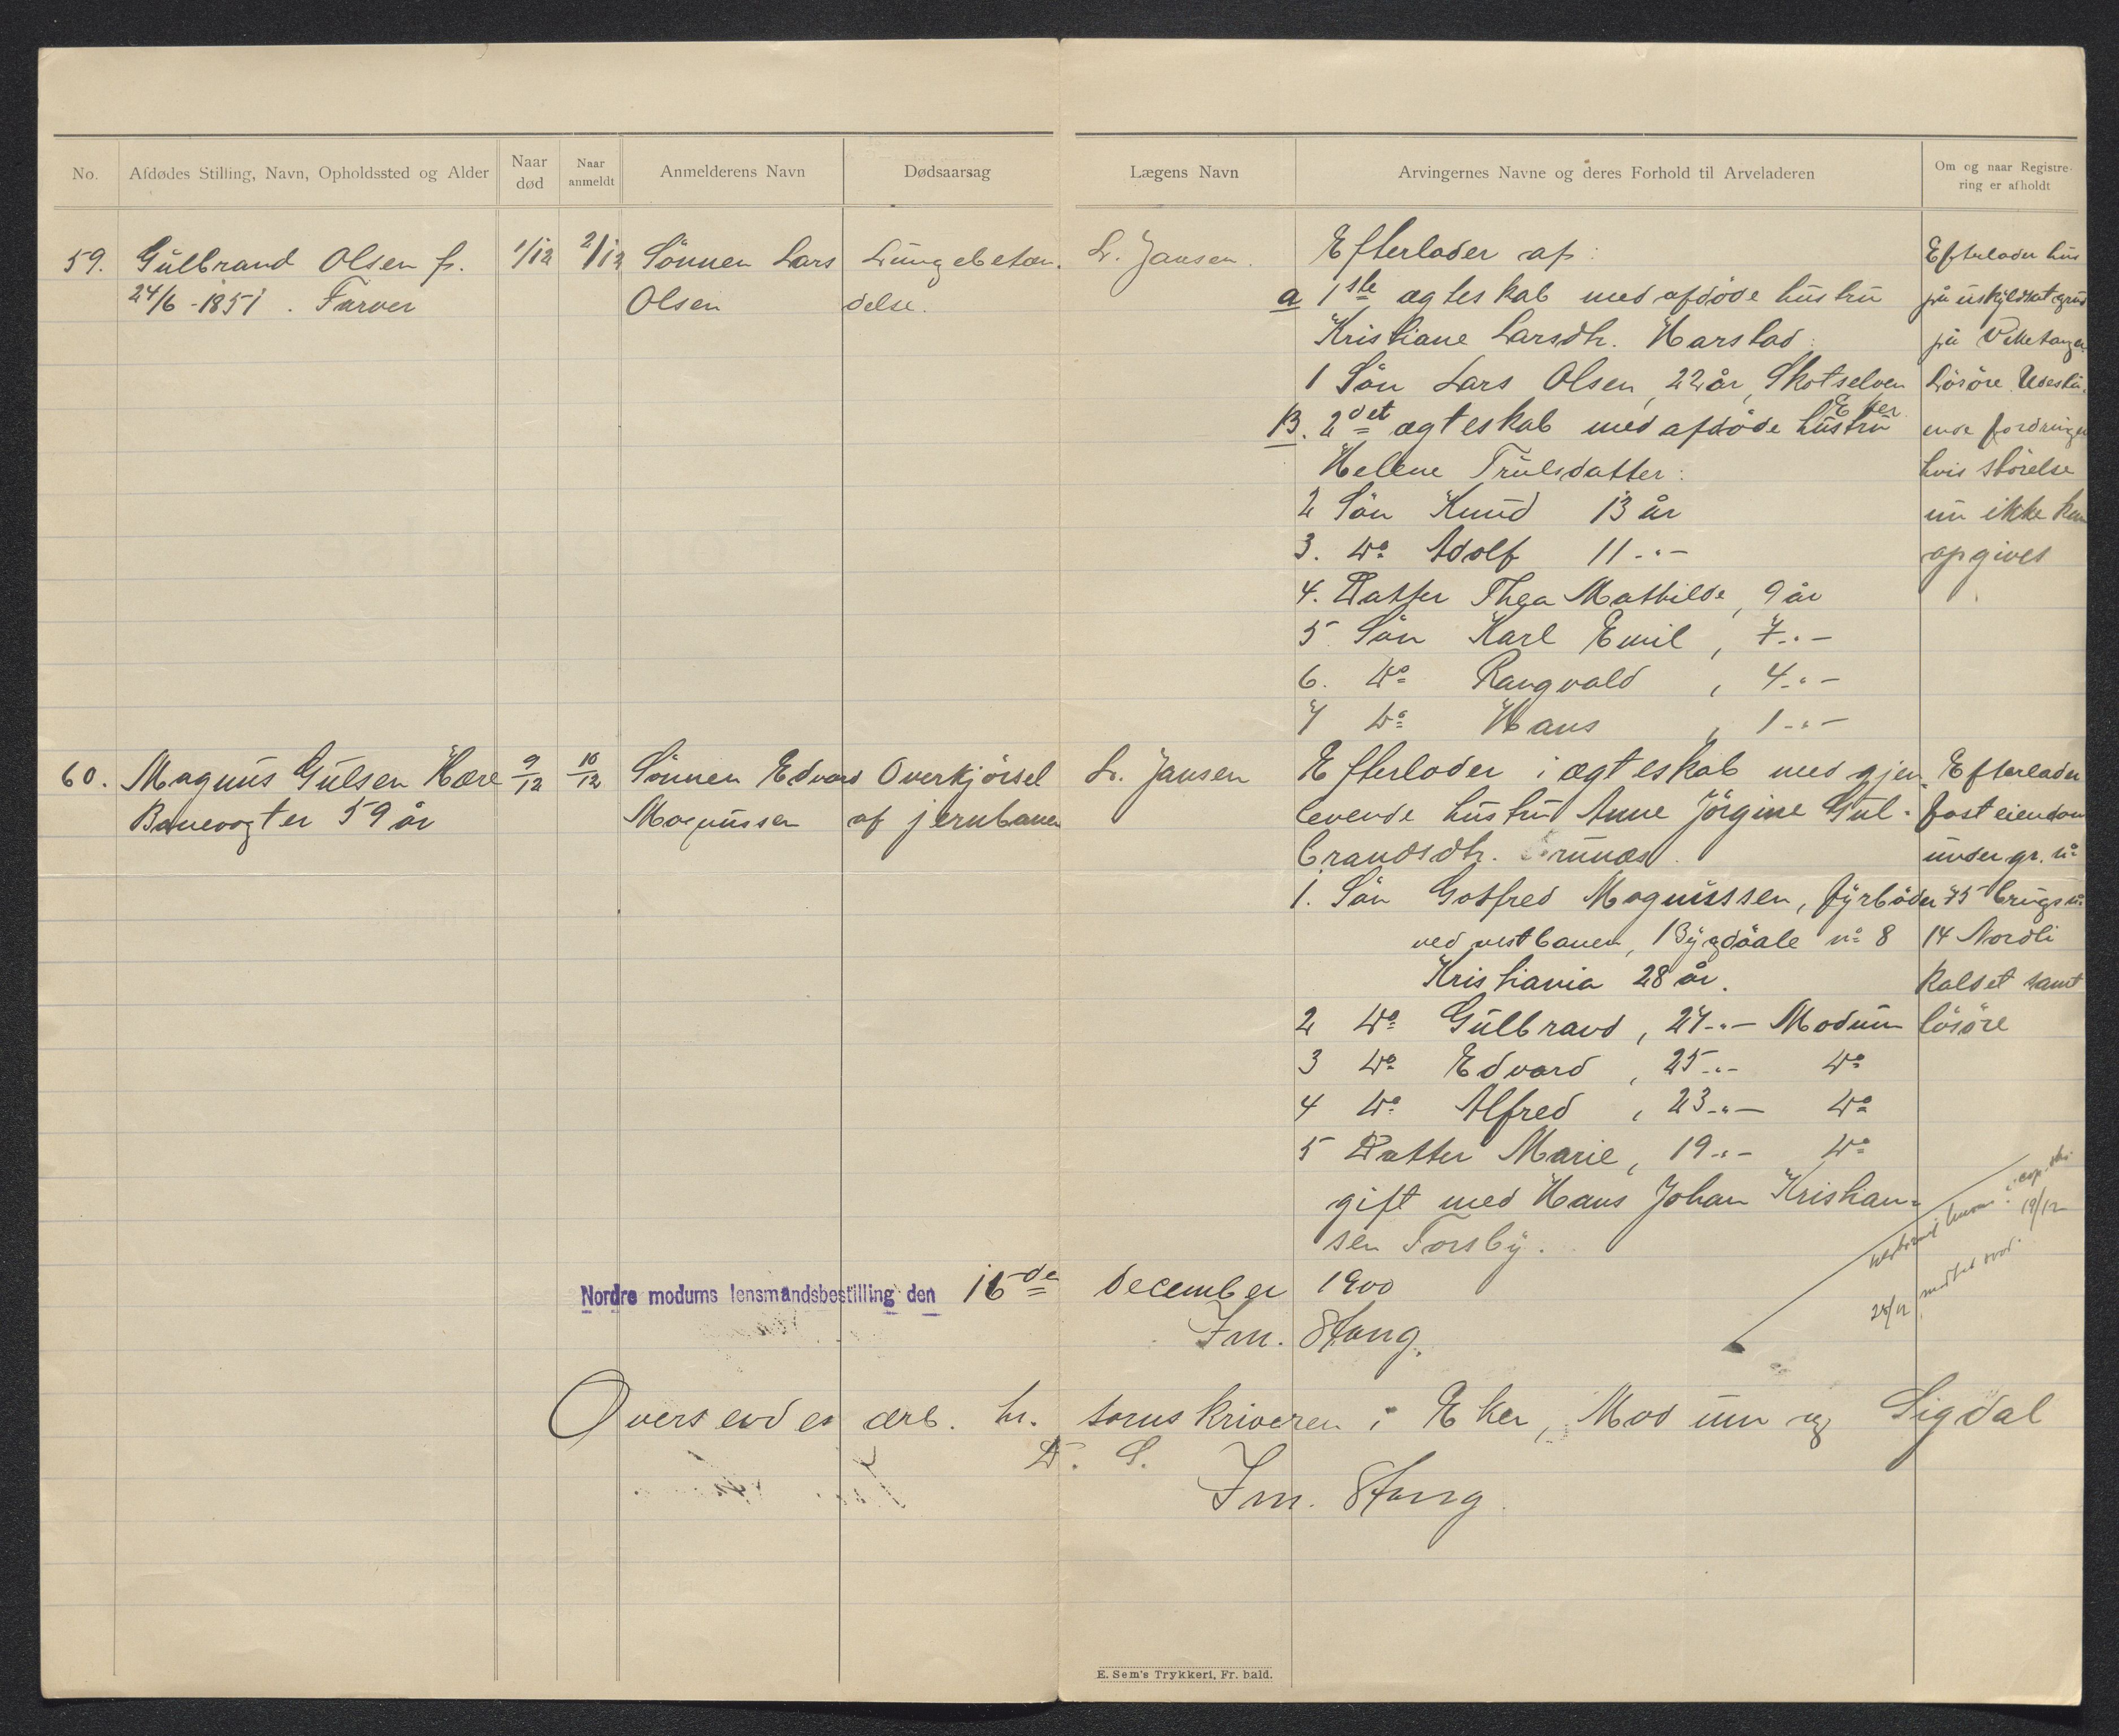 No.
Afdødes Stilling, Navn, Opholdssted og Alder
Naar død
Naar anmeldt
Anmelderens Navn
Dødsaarsag
Lægens Navn
Arvingernes Navne og deres Forhold til Arveladeren
Om og naar Registre-
ring er afholdt
59. Gulbrand Olsen f.
24/6 - 1851. Farver
1/12
2/12
Sönnen Lars
Olsen
Lungebetæn-
delse.
L. Jansen.
Efterlader af:
a 1ste ægteskab med afdöde hustru
Kristiane Larsdtr. Harstad:
1 Sön Lars Olsen, 22 år, Skotselven
Eker
B. 2det ægteskab med afdöde hustru
Helene Trulsdatter:
2 Sön Knud 13 år
3. Do Adolf 11 -"-
4. Datter Thea Mathilde, 9 år
5 Sön Karl Emil, 7 -"-
6. Do Rangvald, 4 -"-
7 Do Hans, 1 -"-
Efterlader hus
på uskyldsat grund
på Vikesange
Lösöre Uestå-
ende fordringer
hvis störelse
nu ikke kan
opgives
60. Magnus Gulsen Hære
Banevogter 59 år
9/12
10/12
Sönnen Edvard
Magnussen
Overkjörsel
af jernbanen
L. Jansen
Efterlader i ægteskab med gjen-
levende hustru Anne Jörgine Gul-
brandsdtr.
1. Sön Gotfred Magnussen, fyrböder
ved vestbanen, Bygdöale no 8
Kristiania 28 år.
2 Do Gulbrand, 27 -"- Modum
3 Do Edvard, 25 -"- Do
4 Do Alfred, 23 -"- Do
5 Datter Marie, 19 -"- Do
gift med Hans Johan Kristian-
sen Forsby.
Efterlader
fast eiendom
under gr. no
75 brugs no
14 Nordli
Kalset samt
lösöre
19/12
28/12
Nordre modums lensmandsbestilling den 16de December 1900
Fm. Stang.
Oversendes ærb. hr. sorenskriveren i Eker, Modum og Sigdal
D. S.
Fm. Stang.
E. Sem's Trykkeri, Fr.hald.